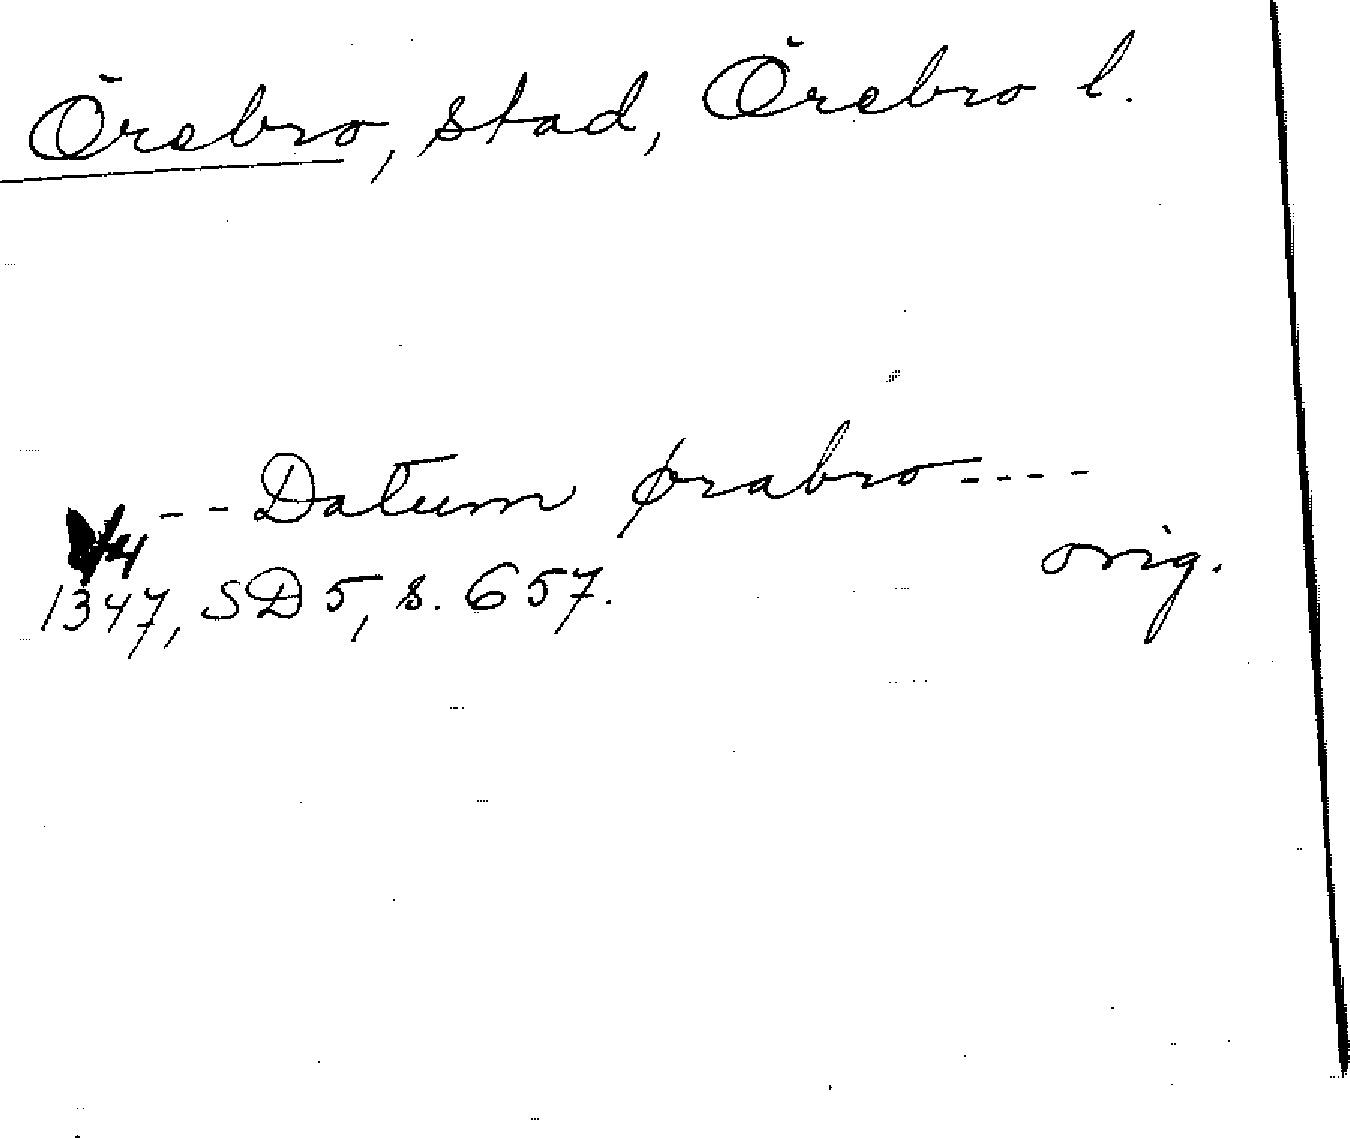 Örebro, stad, Örebro l.
-- Datum ørabro ----
/4 orig.
1347, SD 5, s. 657.